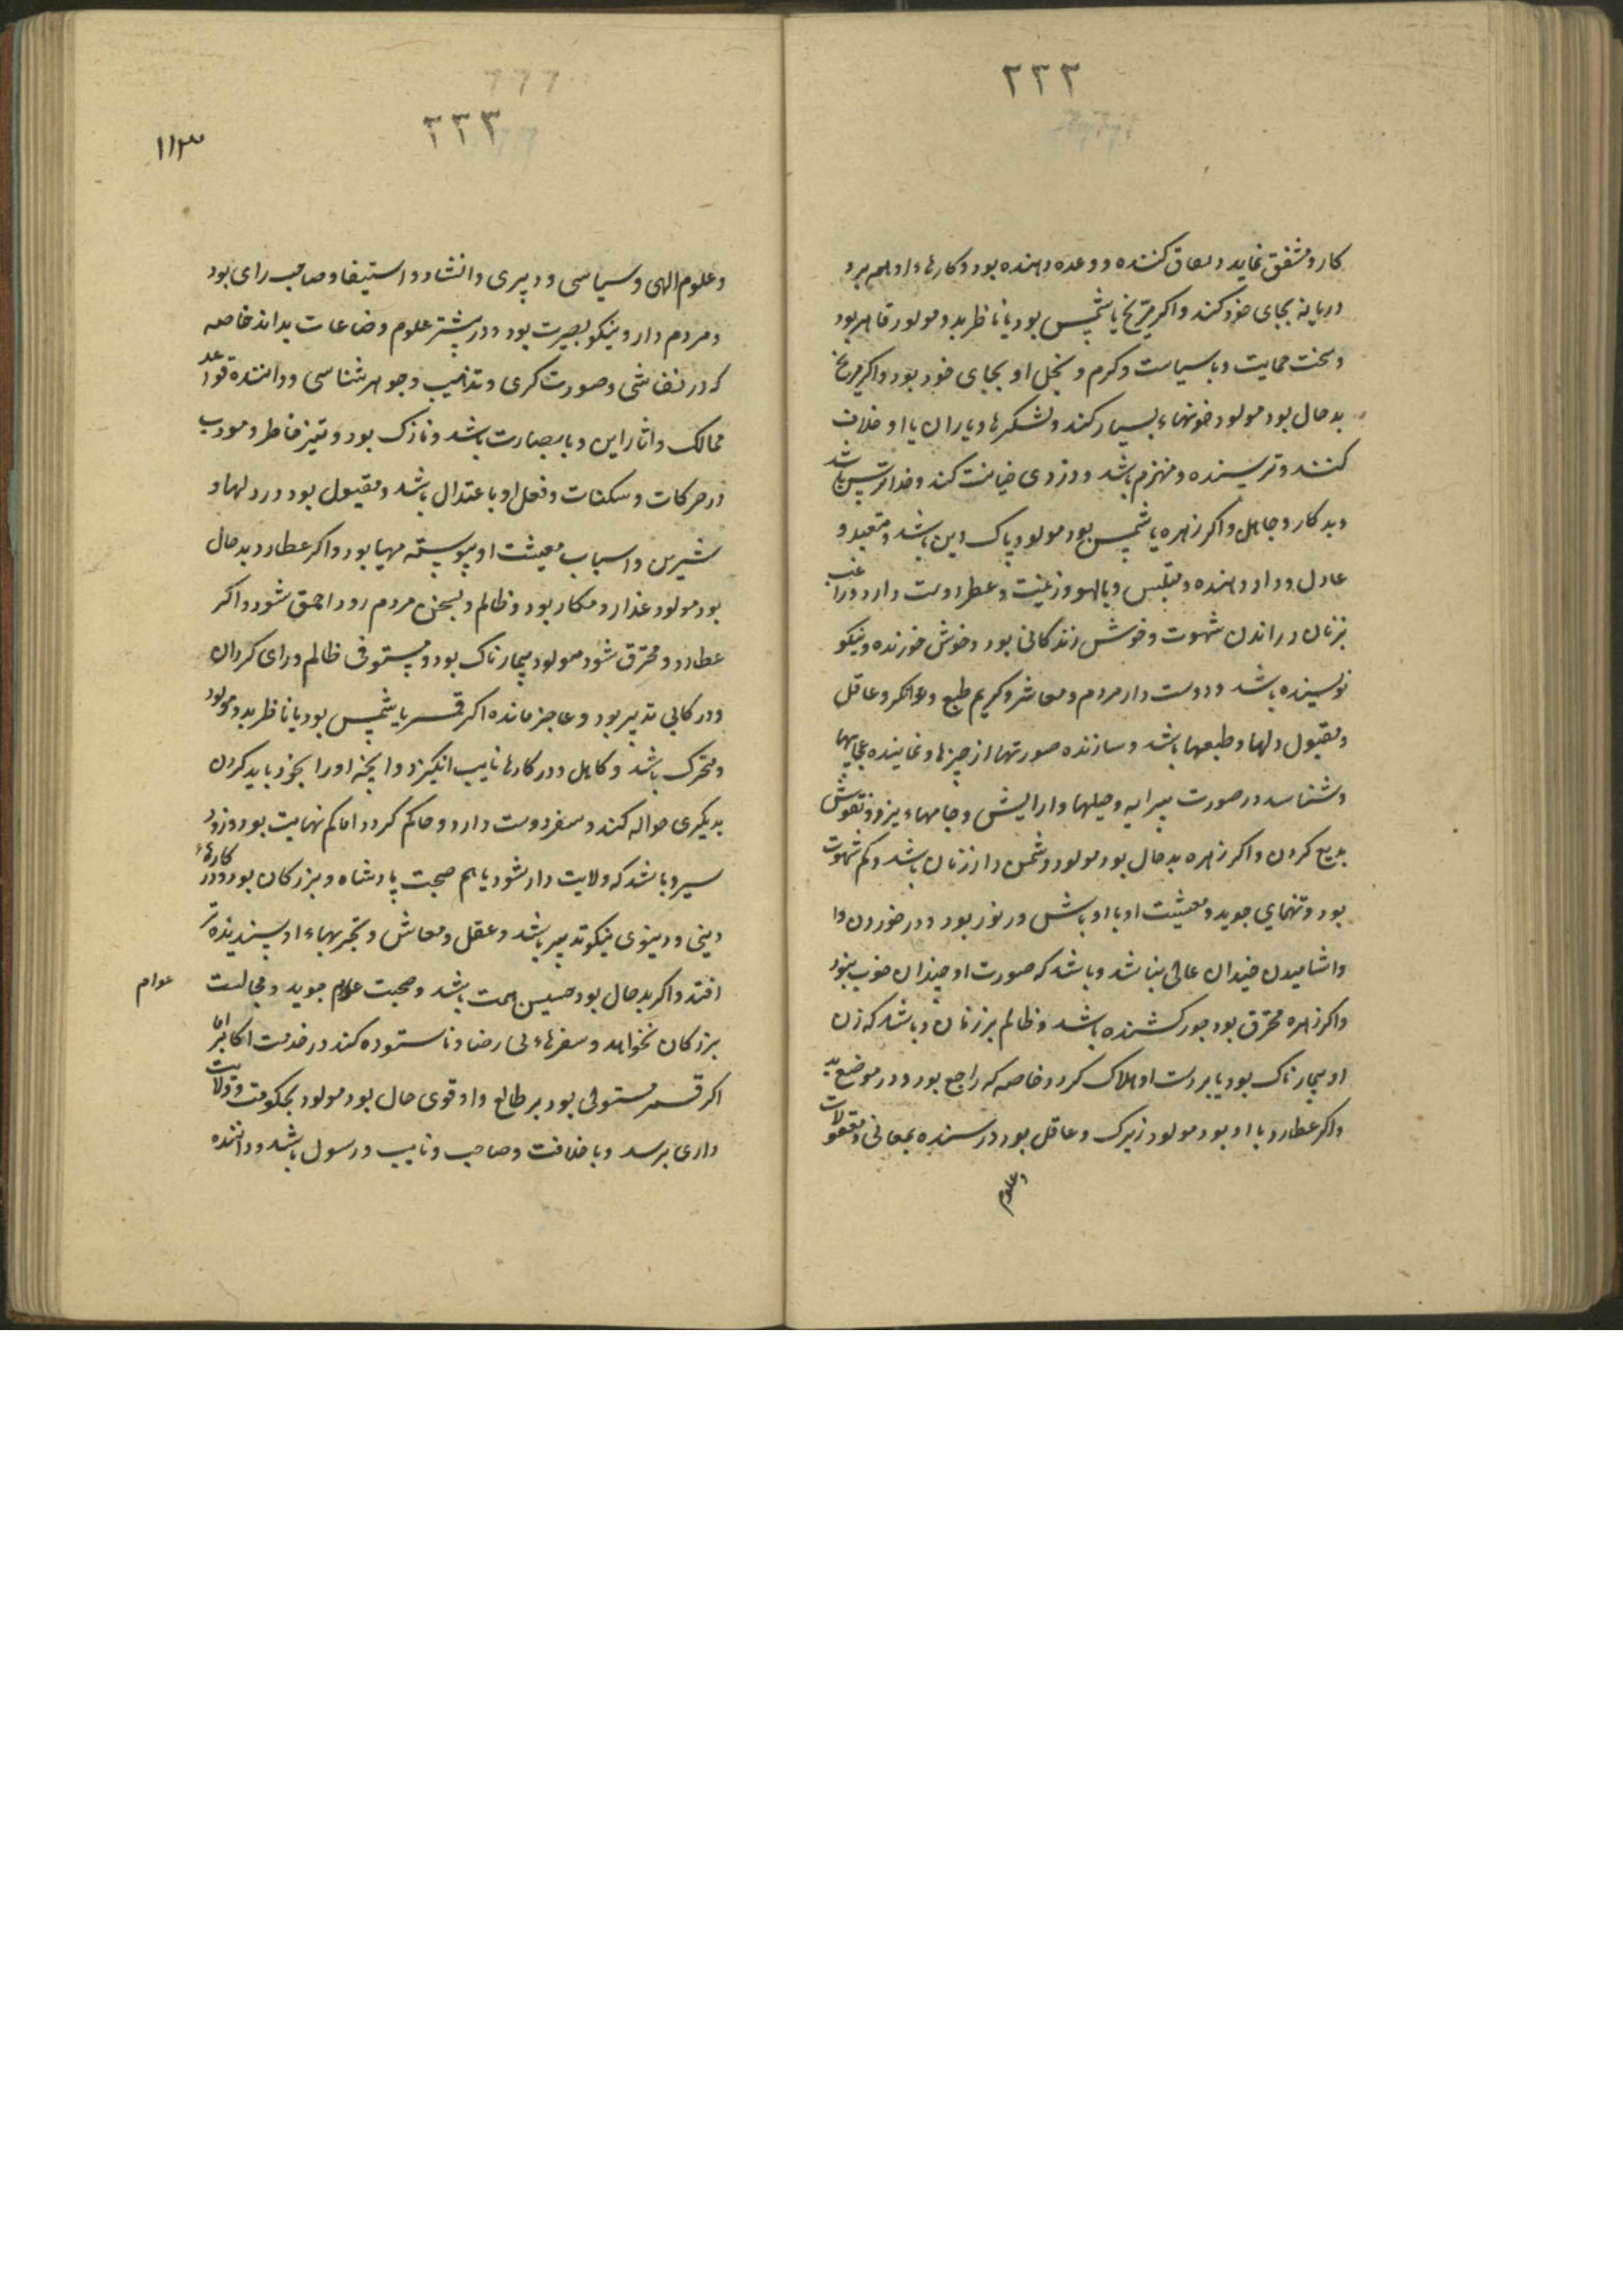 ۲۲۲
کار و مشفق نماید و کننده و وعده دهنده بود و کارهاء او
در یابد بجای خود کند و اکر مریخ با شمس بود یا ناظر بدو مولود قاهر بود
و سخت حمایت و با سیاست و کرم و بخل او بجای خود بود و اکر مریخ
بد حال بود مولود خونهاء بسیار کند و لشکرها و یاران با او خلاف
کنند و ترسنده و منهزم باشد و دزدی خیانت کند و خدا ترس باشد
و بد کار و جاهل و اکر زهره با شمس بود مولود پاک دین باشد و متعبد و
عادل و داد دهنده و بالهو و زینت و عطر دوست دارد و راغب
بزنان در راندن شهوت و خوش زندکانی بود و خوش خورنده و نیکو
نویسنده باشد و دوست دار مردم و معاشر و کریم طبع و توانکر و عاقل
و مقبول دلها و طبعها باشد و سازنده صورتها از چیزها و نماینده عجایبها
و شناسد در صورت پیرایه و حیلها و ارایش و جامهاء و نقوش
بدیع کردن و اکر زهره بد حال بود مولود دشمن دار زنان باشد و کم شهوت
بود و تنهایی جوید و معیشت او با اوباش و بود و در خوردن و ا
و اشامیدن چندان عالی نباشد و باشد که صورت او چندان خوب نبود
و اکر زهره محترق بود جور کشنده باشد و ظالم بر زنان و باشد که زن
او بیمارناک بود یا بر دست او هلاک کردد خاصه که راجع بود و در موضع بد
و اکر عطارد با او بود مولود زیرک و عاقل بود در رسنده بمعانی و معقولات
و علوم
۲۲۳
۱۱۳
و علوم الهی و سیاسی و دبیری و انشاد و استیفا و صاحب رای بود
و مردم دار و نیکو بصیرت بود و در بیشتر علوم و صناعات بداند خاصه
که در نقاشی و صورت کری و تذهیب و جوهر شناسی و داننده قواعد
ممالک و اثار این و با بصارت باشد و نازک بود و تیز خاطر و مودب
در حرکات و سکنات و فعل او با عتدال باشد و مقبول بود در دلها و
شیرین و اسباب معیشت او پیوسته مهیا بود و اکر عطارد بد حال
بود مولود غدار و مکار بود و ظالم و بسخن مردم رود احمق شود و اکر
عطارد و محترق شود مولود بیمارناک بود و مستوفی ظالم و رای کردان
و در کابی تدبیر بود و عاجز مانده اکر قمر با شمس بود یا ناظر بدو مولود
متحرک باشد و کاهل و در کارها نایب انکیزد و انچه او را بخود باید کردن
بدیکری حواله کند و سفر دوست دارد و حاکم کردد اما کم نهایت بود و زود
سیر و باشد که ولایت دار شود یا هم صحبت پادشاه و بزرکان بود و در کارهاء
دینی و دنیوی نیکو تدبیر باشد و عقل و معاش و تجربهاء او پسندیده تر
افتد و اکر بد حال بود خسیس همت باشد و صحبت عوام جوید و مجالست
عوام
بزرکان نخواهد و سفرهاء بی رضا و ناستوده کند در خدمت اکابر اما
اکر قمر مستولی بود بر طالع و او قوی حال بود مولود بحکومت و ولایت
داری برسد و با خلافت و صاحب و نایب و رسول باشد و داننده